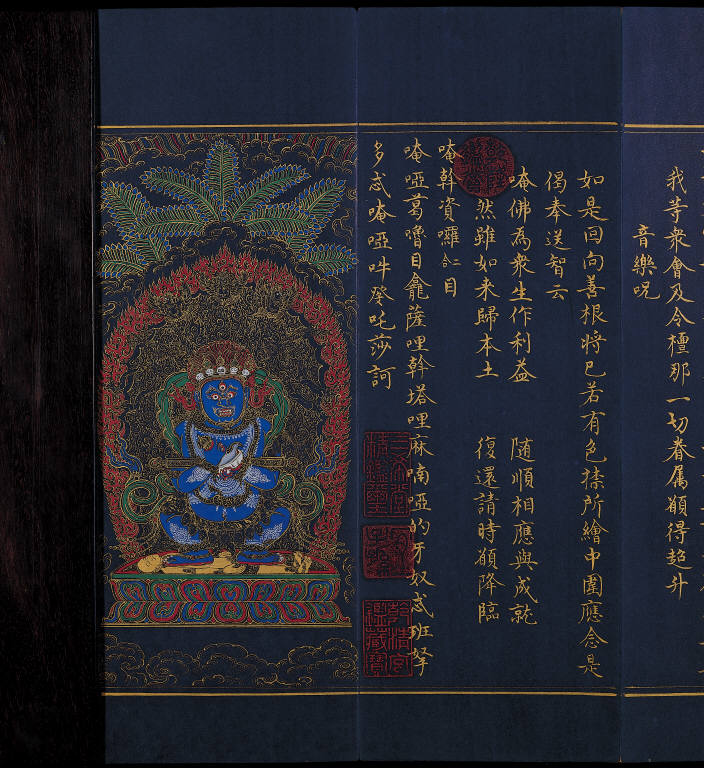 我等衆會及令檀那一切眷属願得超升
音樂呪
如是回向善根將已若有色㯽所繪中圍應念是
偈奉送智云
唵佛為衆生作利益 随順相應與成就
然雖如来歸本土 復還請時願降臨
唵斡資囉仁目
唵啞葛嚕目龕薩哩斡塔哩麻喃啞的牙奴忒班拏
多忒唵啞吽癹吒莎訶
三希堂精鑑璽
宜子孫
乾清宮鑑藏寶